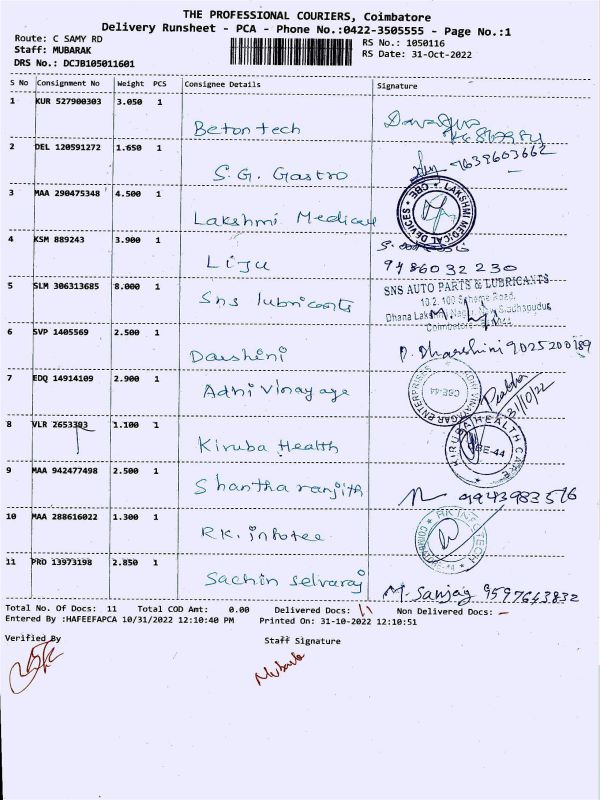 THE PROFESSIONAL COURIERS, Coimbatore
Delivery Runsheet - PCA - Phone No.:0422-3505555 - Page No.:1
Route: C SAMY RD
RS No.: 1050116
Staff: MUBARAK
RS Date: 31-Oct-2022
DRS No.: DCJB105011601
S No Consignment No Weight PCS Consignee Details Signature
1 KUR 527900303 3.050 1
Betontech
2 DEL 120591272 1.650 1
S.G. Gastro 9639603662
3 MAA 290475348 4.500 1
Lakshmi Medical LAKSHMI MEDICAL DEVICES CBE
4 KSM 889243 3.900 1
Liju 9486032230
5 SLM 306313685 8.000 1
Sns lubricants SNS AUTO PARTS & LUBRICANTS
6 SVP 1405569 2.500 1
Darshini D. Dharshini 9025200189
7 EDQ 14914109 2.900 1
Adhi Vinayaga ADHI VINAYAGAR ENTERPRISES CBE-44 31/10/22
8 VLR 2653393 1.100 1
Kiruba Health KIRUBA HEALTH CARE CBE-44
9 MAA 942477498 2.500 1
Shantha ranjith 9943983576
10 MAA 288616022 1.300 1
R.K. infotec RK INFO TECH
11 PRO 13973198 2.850 1
Sachin Selvaraj M. Sanjay 9597643832
Total No. Of Docs: 11 Total COD Amt: 0.00 Delivered Docs: 11 Non Delivered Docs: -
Entered By :HAFEEFAPCA 10/31/2022 12:10:40 PM Printed On: 31-10-2022 12:10:51
Verified By Staff Signature
Mubarak